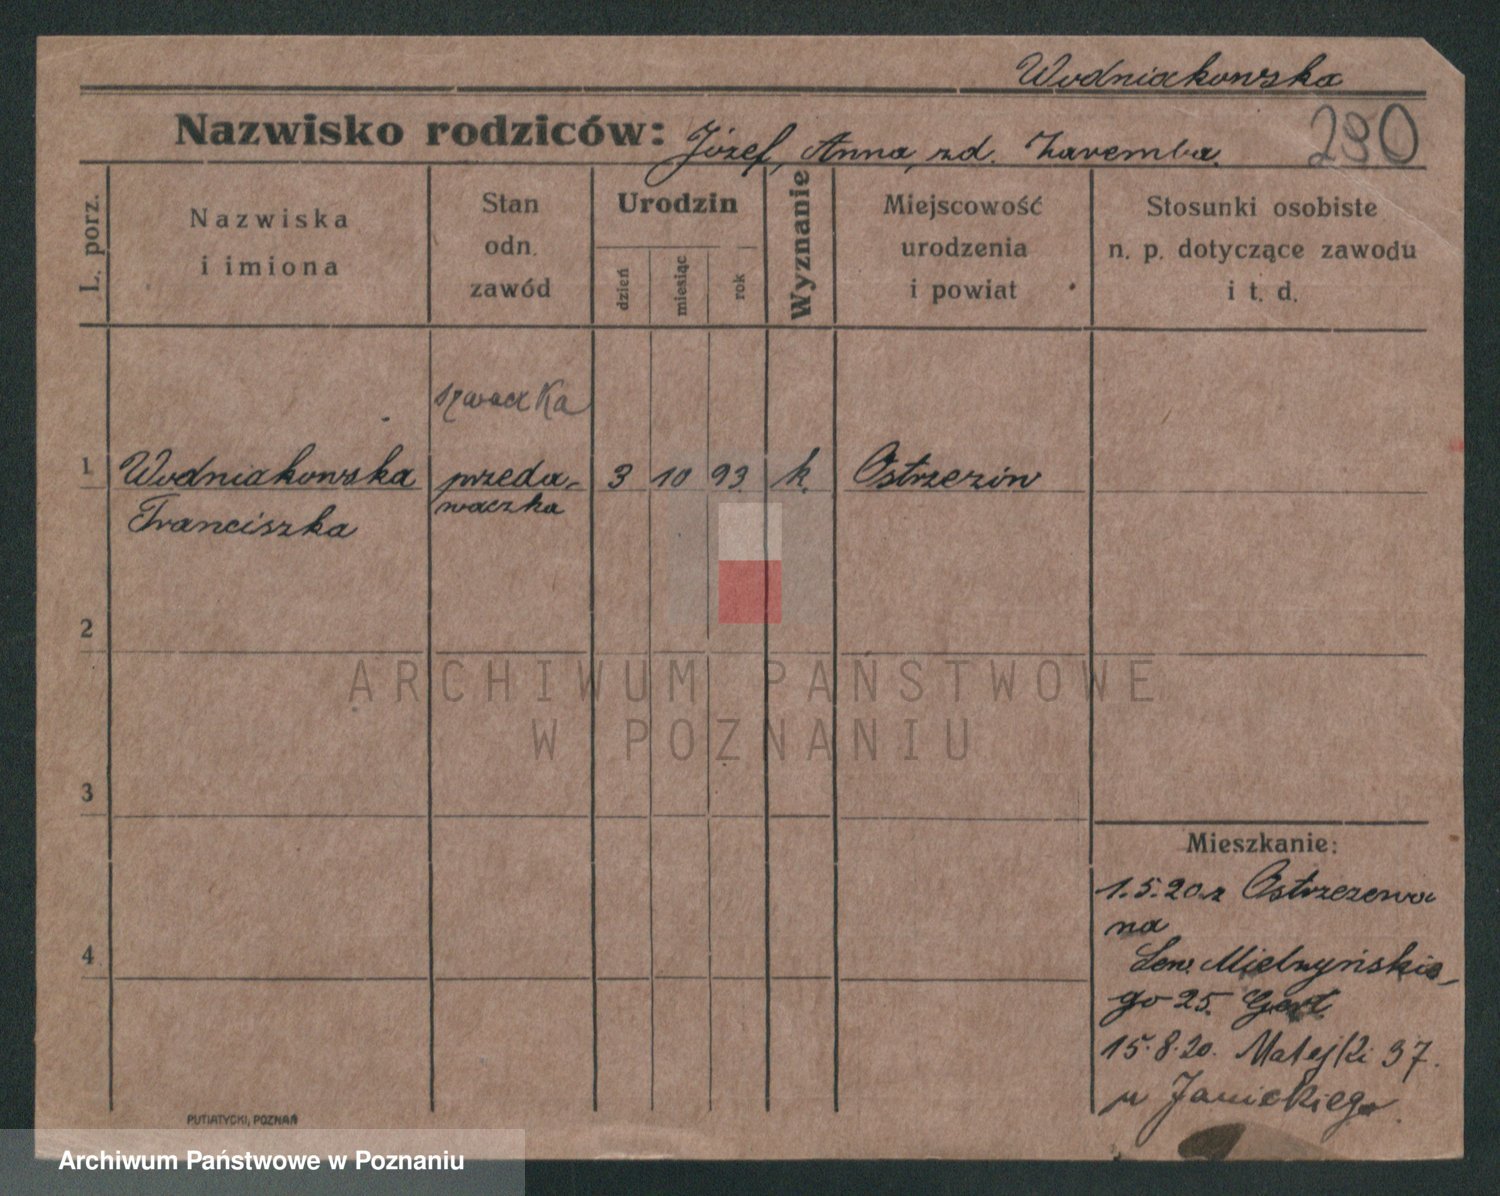 Wodniakowska
Nazwisko rodziców: Józef, Anna, zd. Zaremba.
290
L. porz.
Nazwiska
i imiona
Stan
odn.
zawód
Urodzin
dzień
miesiąc
rok
Wyznanie
Miejscowość
urodzenia
i powiat
Stosunki osobiste
n. p. dotyczące zawodu
i t. d.
szwaczka
1 Wodniakowska przeda- 3 10 93 k. Ostrzezów
Franciszka waczka
2
3
4
ARCHIWUM PAŃSTWOWE
W POZNANIU
Mieszkanie:
1.5.20. z Ostrzezewa
na
Sew. Mielzyńskie-
go 25.
15.8.20. Matejki 37.
u Janickiego.
PUTIATYCKI, POZNAŃ
Archiwum Państwowe w Poznaniu